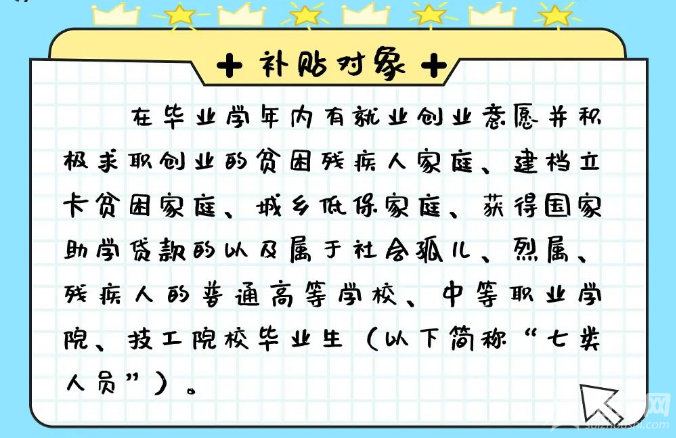 + 补贴对象 +
在毕业学年内有就业创业意愿并积
极求职创业的贫困残疾人家庭、建档立
卡贫困家庭、城乡低保家庭、获得国家
助学贷款的以及属于社会孤儿、烈属、
残疾人的普通高等学校、中等职业学
院、技工院校毕业生（以下简称“七类
人员”）。